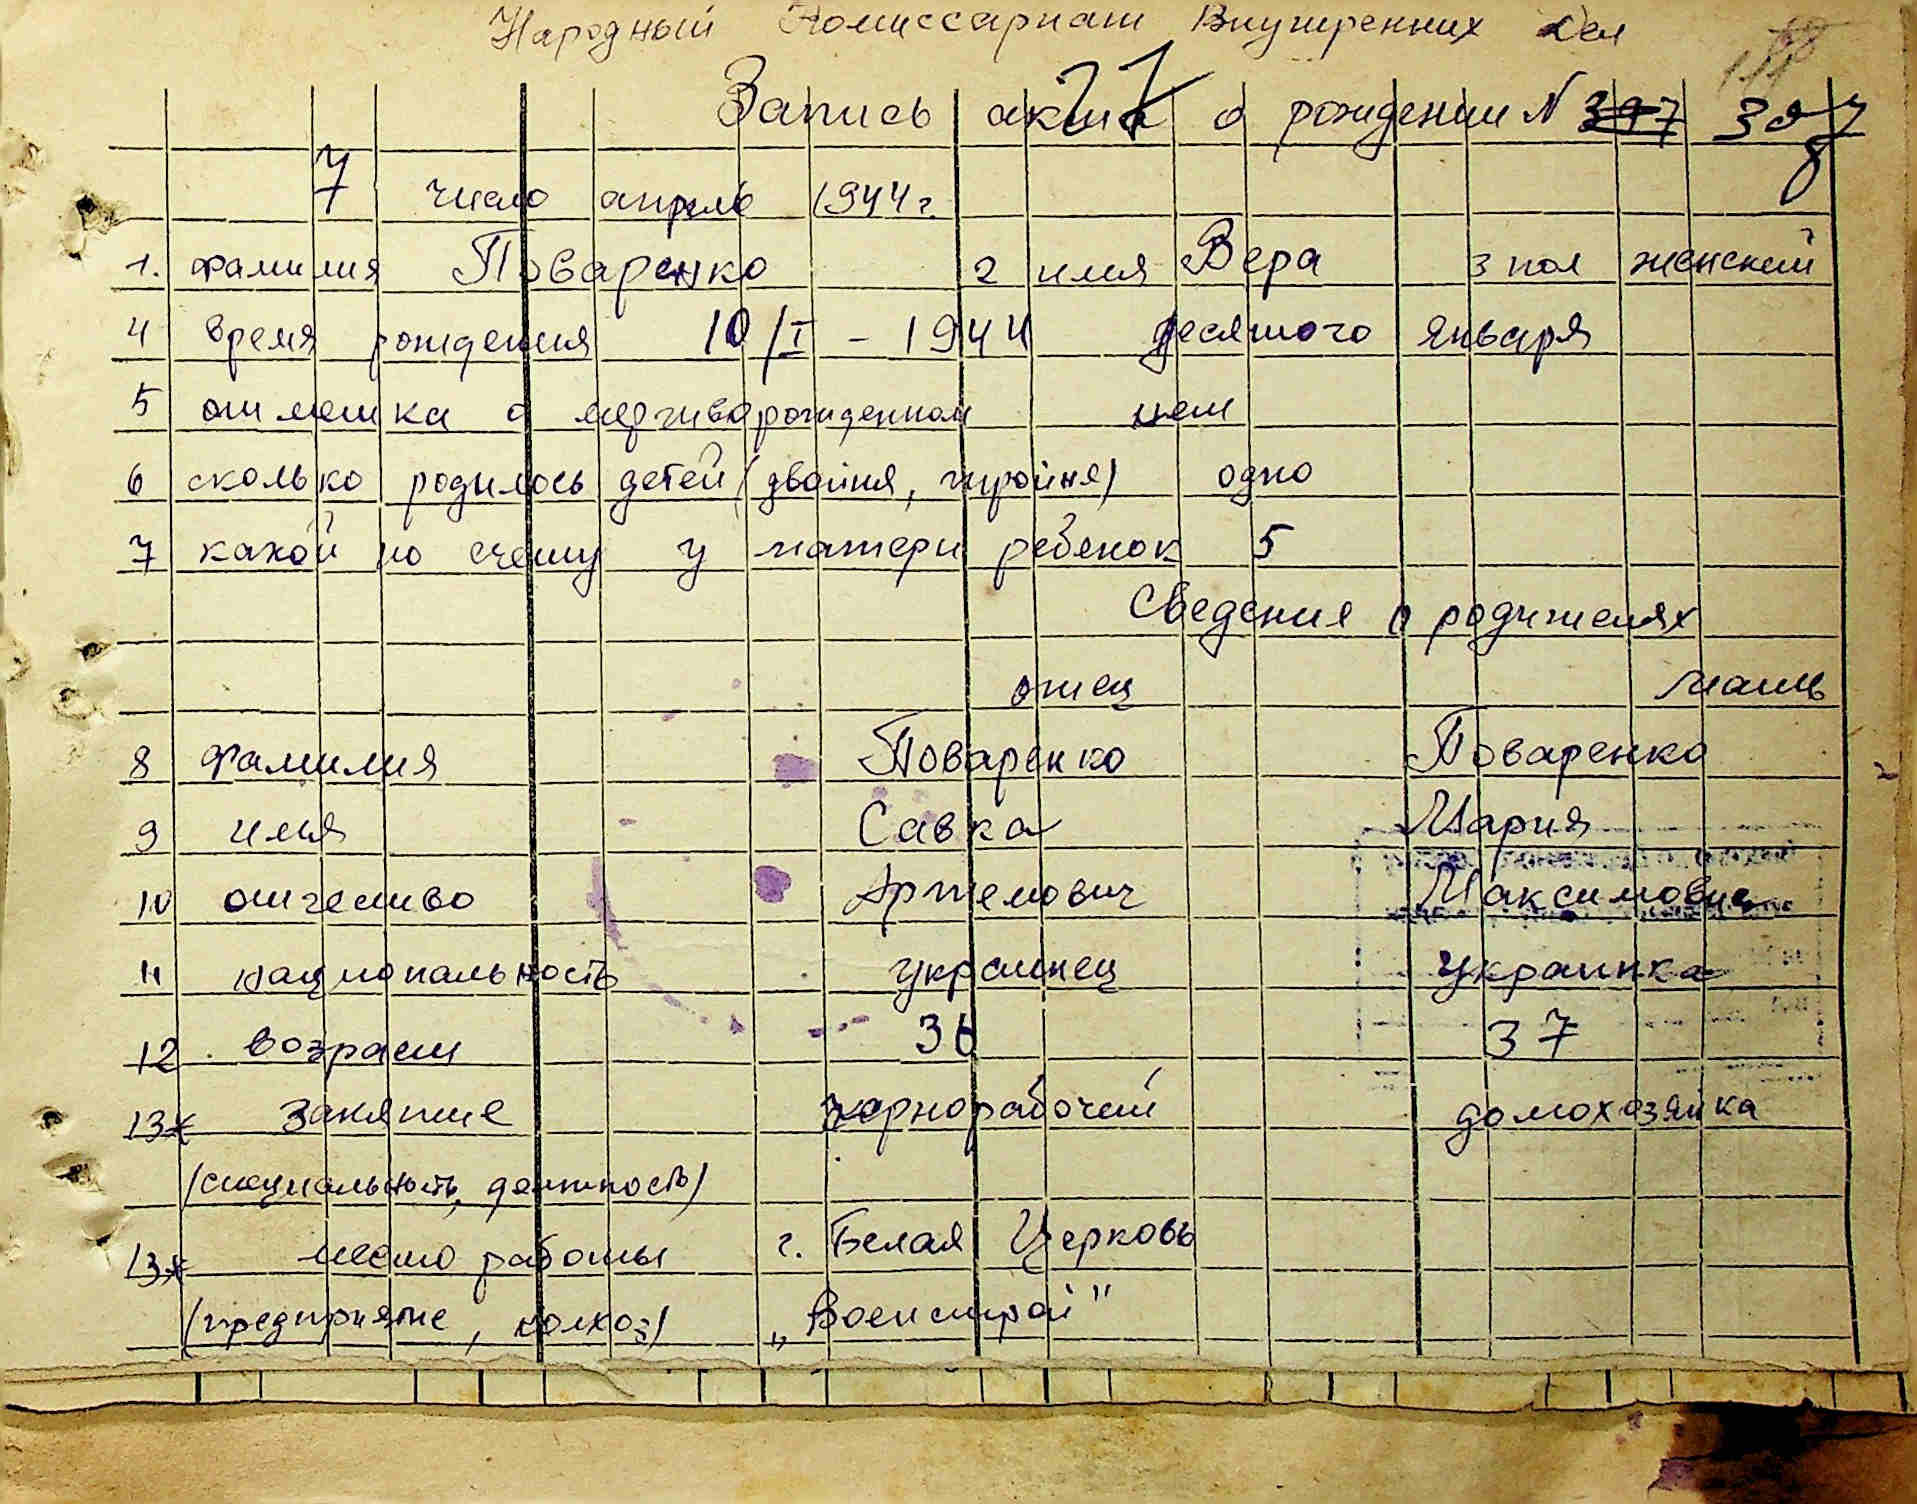 Народный Комиссариат Внутренних Дел
Запись акта о рождении N 397
7 число апрель 1944 г.
1. фамилия Поваренко 2 имя Вера 3 пол женский
4 время рождения 10/I - 1944 десятого января
5 отметка о мертворожденном нет
6 сколько родилось детей (двойня, тройня) одно
7 какой по счету у матери ребенок 5
Сведения о родителях
отец мать
8 фамилия Поваренко Поваренко
9 имя Савка Мария
10 отчество Артемович Максимовна
11 национальность украинец украинка
12 возраст 36 37
13* Занятие чернорабочий домохозяйка
(специальность, должность)
13* место работы г. Белая Церковь
(предприятие, колхоз) „Военстрой"